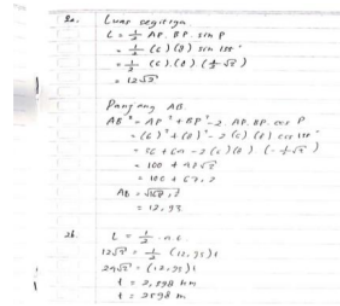 2a. Luas segitiga
L = 1/2 AP . BP . sin P
= 1/2 (6) (8) sin 135°
= 1/2 (6) . (8) (1/2 √2)
= 12√2
Panjang AB.
AB² = AP² + BP² - 2. AP. BP. cos P
= (6)² + (8)² - 2 (6) (8) cos 135°
= 36 + 64 - 2 (6) (8) (-1/2 √2)
= 100 + 48√2
= 100 + 67,2
AB =
= 12,93
2b. L = 1/2 . a.t
12√2 = 1/2 (12,93) t
24√2 = (12,93) t
t = 2,598 km
t = 2598 m